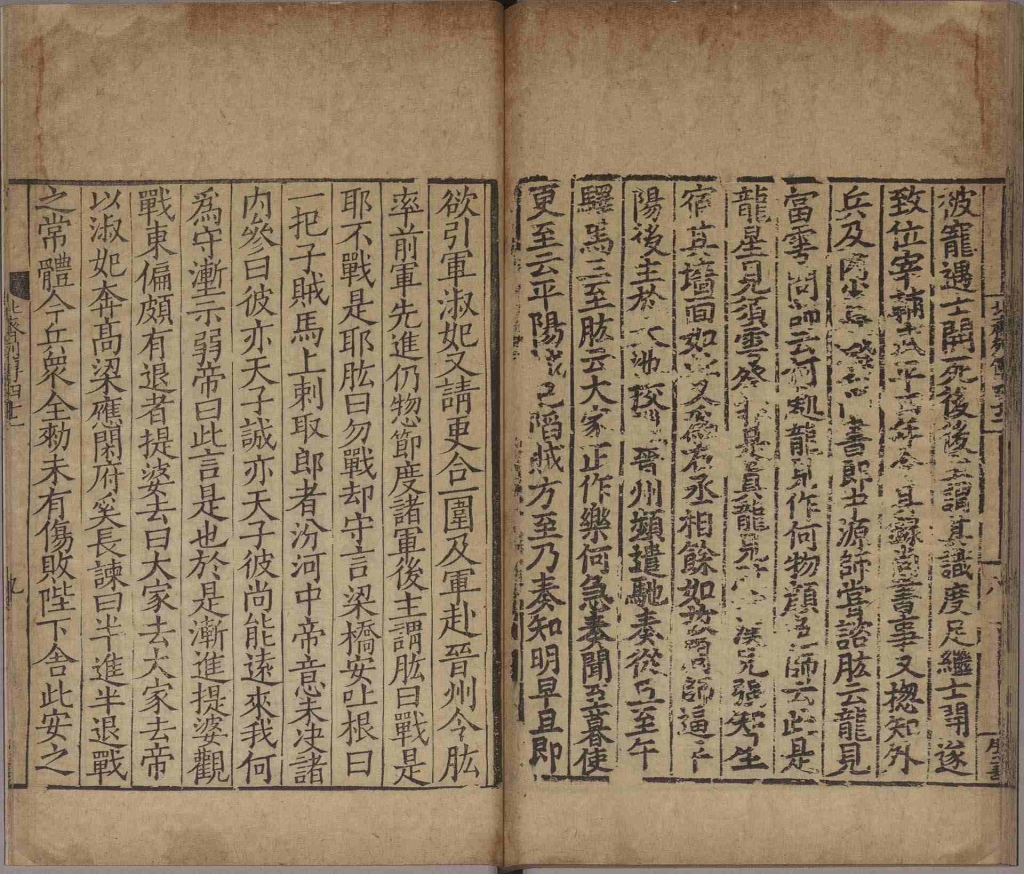 被寵遇士開死後後主謂其識度足繼士開遂
致位宰輔武平五年令其錄尚書事又揔知外
兵及內省機密尚書郎中源師嘗諮肱云龍見
當雩問師云何處龍見作何物顔色師云此是
龍星見須雩祭非是真龍見肱云漢兒強知星
宿其墻面如此又為右丞相餘如故晉師逼平
陽後主於天池校獵晉州頻遣馳奏從旦至午
驛馬三至肱云大家正作樂何急奏聞至暮使
更至云平陽城已陷賊方至乃奏知明早旦即
欲引軍淑妃又請更合一圍及軍赴晉州令肱
率前軍先進仍惣節度諸軍後主謂肱曰戰是
耶不戰是耶肱曰勿戰却守言梁橋安吐根曰
一把子賊馬上刺取郎者汾河中帝意未决諸
内參曰彼亦天子誠亦天子彼尚能遠來我何
為守漸示弱帝曰此言是也於是漸進提婆觀
戰東偏頗有退者提婆去曰大家去大家去帝
以淑妃奔高梁應開府奚長諫曰半進半退戰
之常體今兵衆全勑未有傷敗陛下舍此安之
九